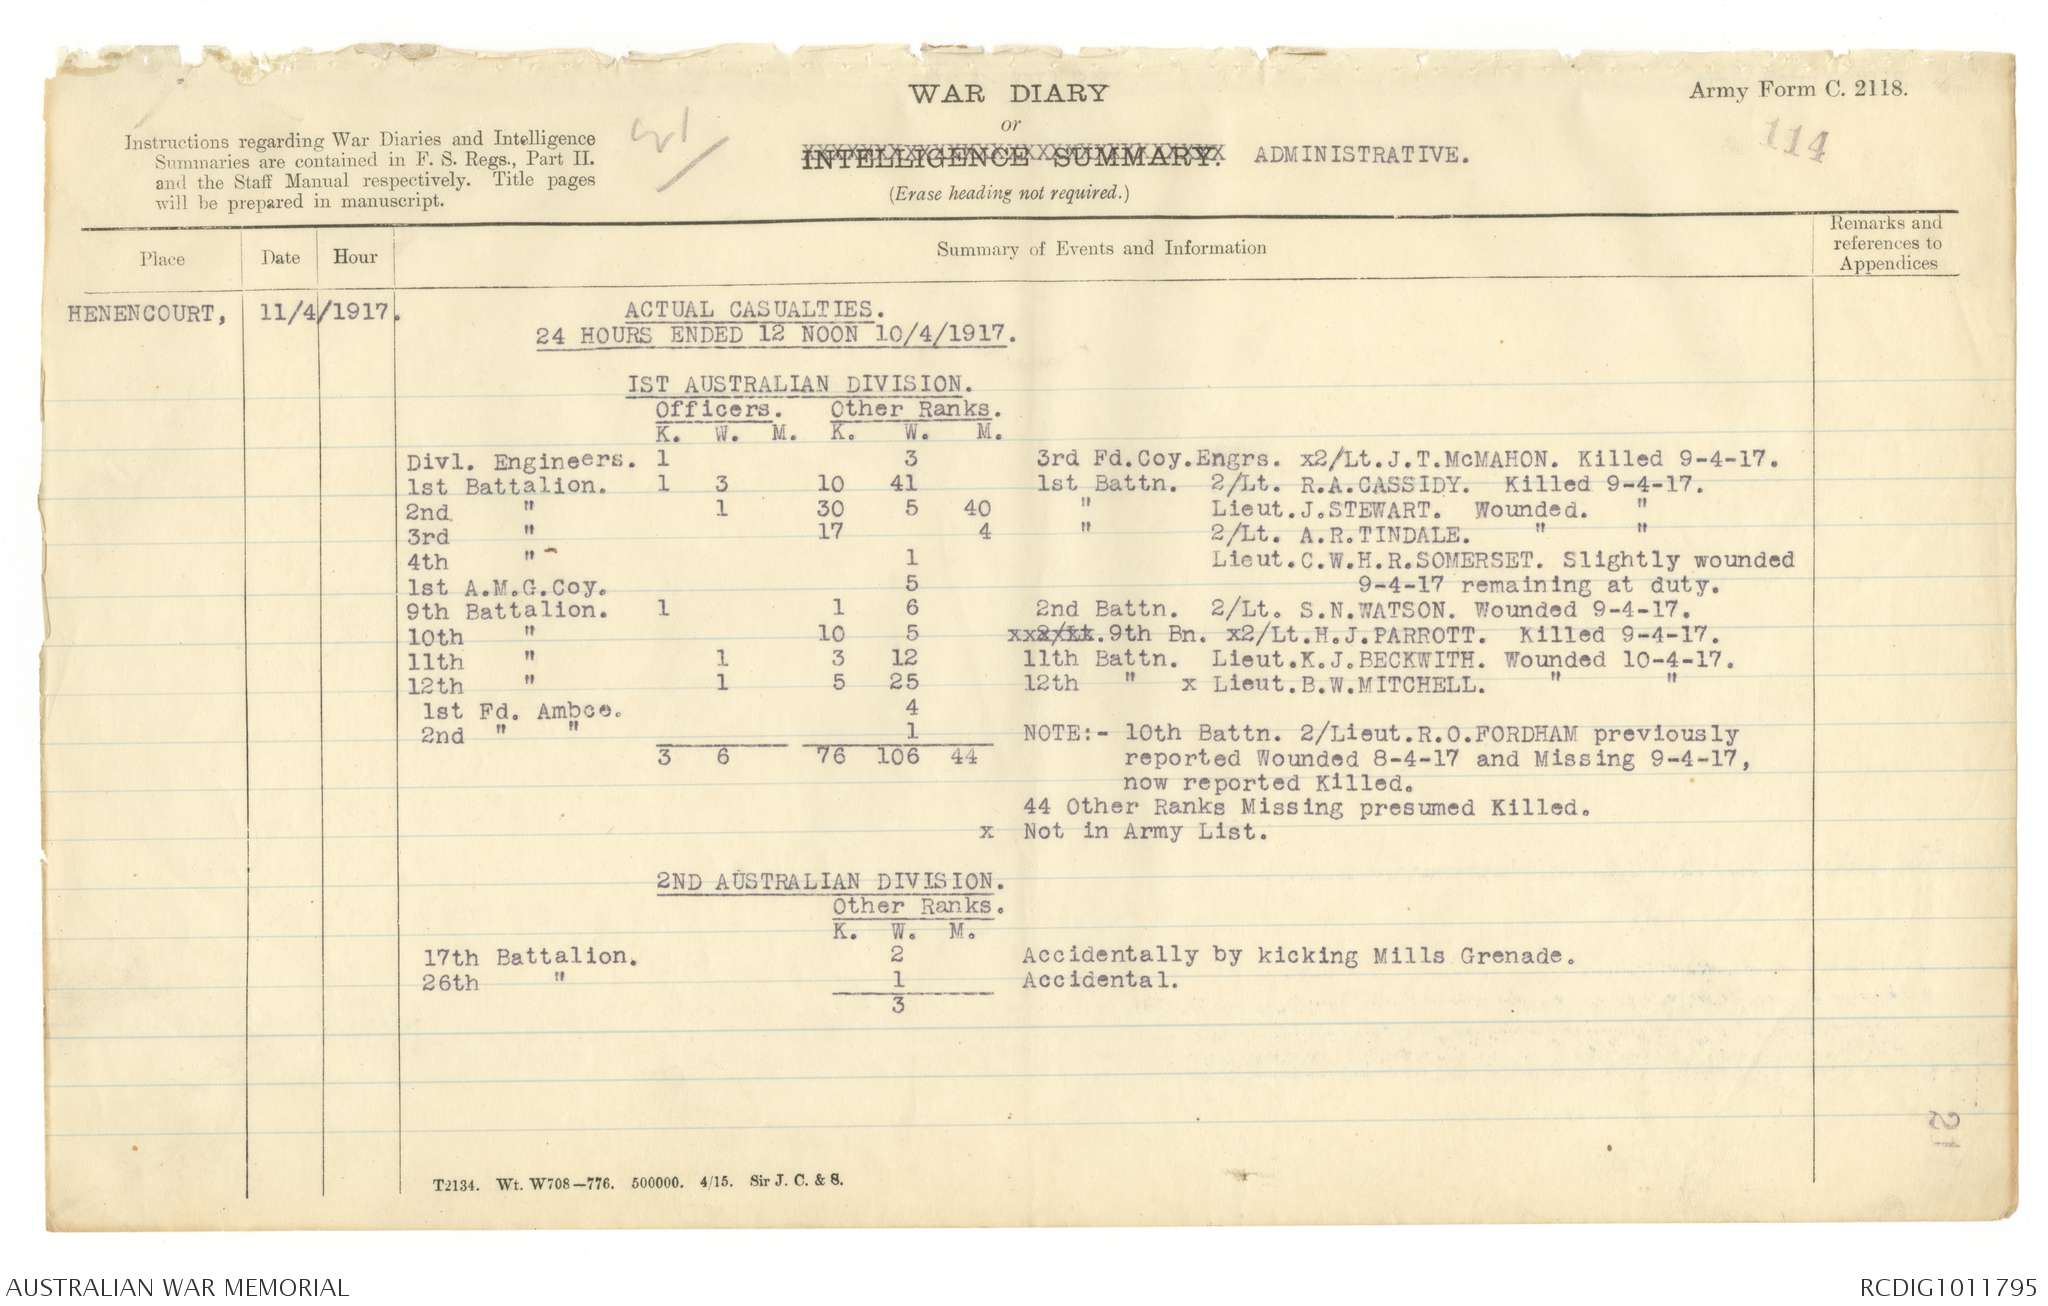 WAR DIARY
or
INTELLIGENCE SUMMARY. ADMINISTRATIVE.
(Erase heading not required.)
Army Form C. 2118.
114
Instructions regarding War Diaries and Intelligence
Summaries are contained in F. S. Regs., Part II.
and the Staff Manual respectively. Title pages
will be prepared in manuscript.
Place Date Hour Summary of Events and Information Remarks and references to Appendices
HENENCOURT, 11/4/1917. ACTUAL CASUALTIES.
24 HOURS ENDED 12 NOON 10/4/1917.
IST AUSTRALIAN DIVISION.
Officers. Other Ranks.
K. W. M. K. W. M.
Divl. Engineers. 1 3 3rd Fd.Coy.Engrs. x2/Lt.J.T.McMAHON. Killed 9-4-17.
1st Battalion. 1 3 10 41 1st Battn. 2/Lt. R.A.CASSIDY. Killed 9-4-17.
2nd " 1 30 5 40 " Lieut.J.STEWART. Wounded. "
3rd " 17 4 " 2/Lt. A.R.TINDALE. " "
4th " 1 Lieut.C.W.H.R.SOMERSET. Slightly wounded
1st A.M.G.Coy. 5 9-4-17 remaining at duty.
9th Battalion. 1 1 6 2nd Battn. 2/Lt. S.N.WATSON. Wounded 9-4-17.
10th " 10 5 xx2/Lt.9th Bn. x2/Lt.H.J.PARROTT. Killed 9-4-17.
11th " 1 3 12 11th Battn. Lieut.K.J.BECKWITH. Wounded 10-4-17.
12th " 1 5 25 12th " x Lieut.B.W.MITCHELL. " "
1st Fd. Ambce. 4
2nd " " 1 NOTE:- 10th Battn. 2/Lieut.R.O.FORDHAM previously
3 6 76 106 44 reported Wounded 8-4-17 and Missing 9-4-17,
now reported Killed.
44 Other Ranks Missing presumed Killed.
x Not in Army List.
2ND AUSTRALIAN DIVISION.
Other Ranks.
K. W. M.
17th Battalion. 2 Accidentally by kicking Mills Grenade.
26th " 1 Accidental.
3
T2134. Wt. W708—776. 500000. 4/15. Sir J. C. & S.
AUSTRALIAN WAR MEMORIAL RCDIG1011795